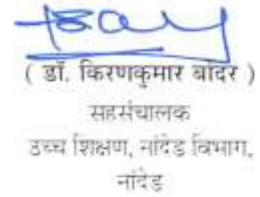 ( डॉ. किरणकुमार बोंदर )
सहसंचालक
उच्च शिक्षण, नांदेड विभाग,
नांदेड